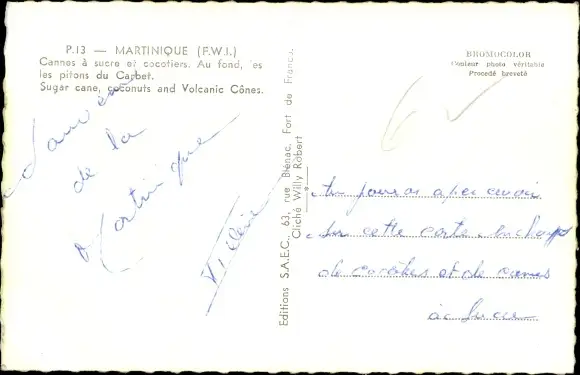 P.13 — MARTINIQUE (F.W.I.)
Cannes à sucre et cocotiers. Au fond, les
les pitons du Carbet.
Sugar cane, coconuts and Volcanic Cônes.
BROMOCOLOR
Couleur photo véritable
Procedé breveté
Editions S.A.E.C. 63, rue Blénac, Fort de France.
Cliché Willy Robert
de la
Martinique
Tu pourras apercevoir
sur cette carte un champ
de cocotiers et de cannes
à sucre